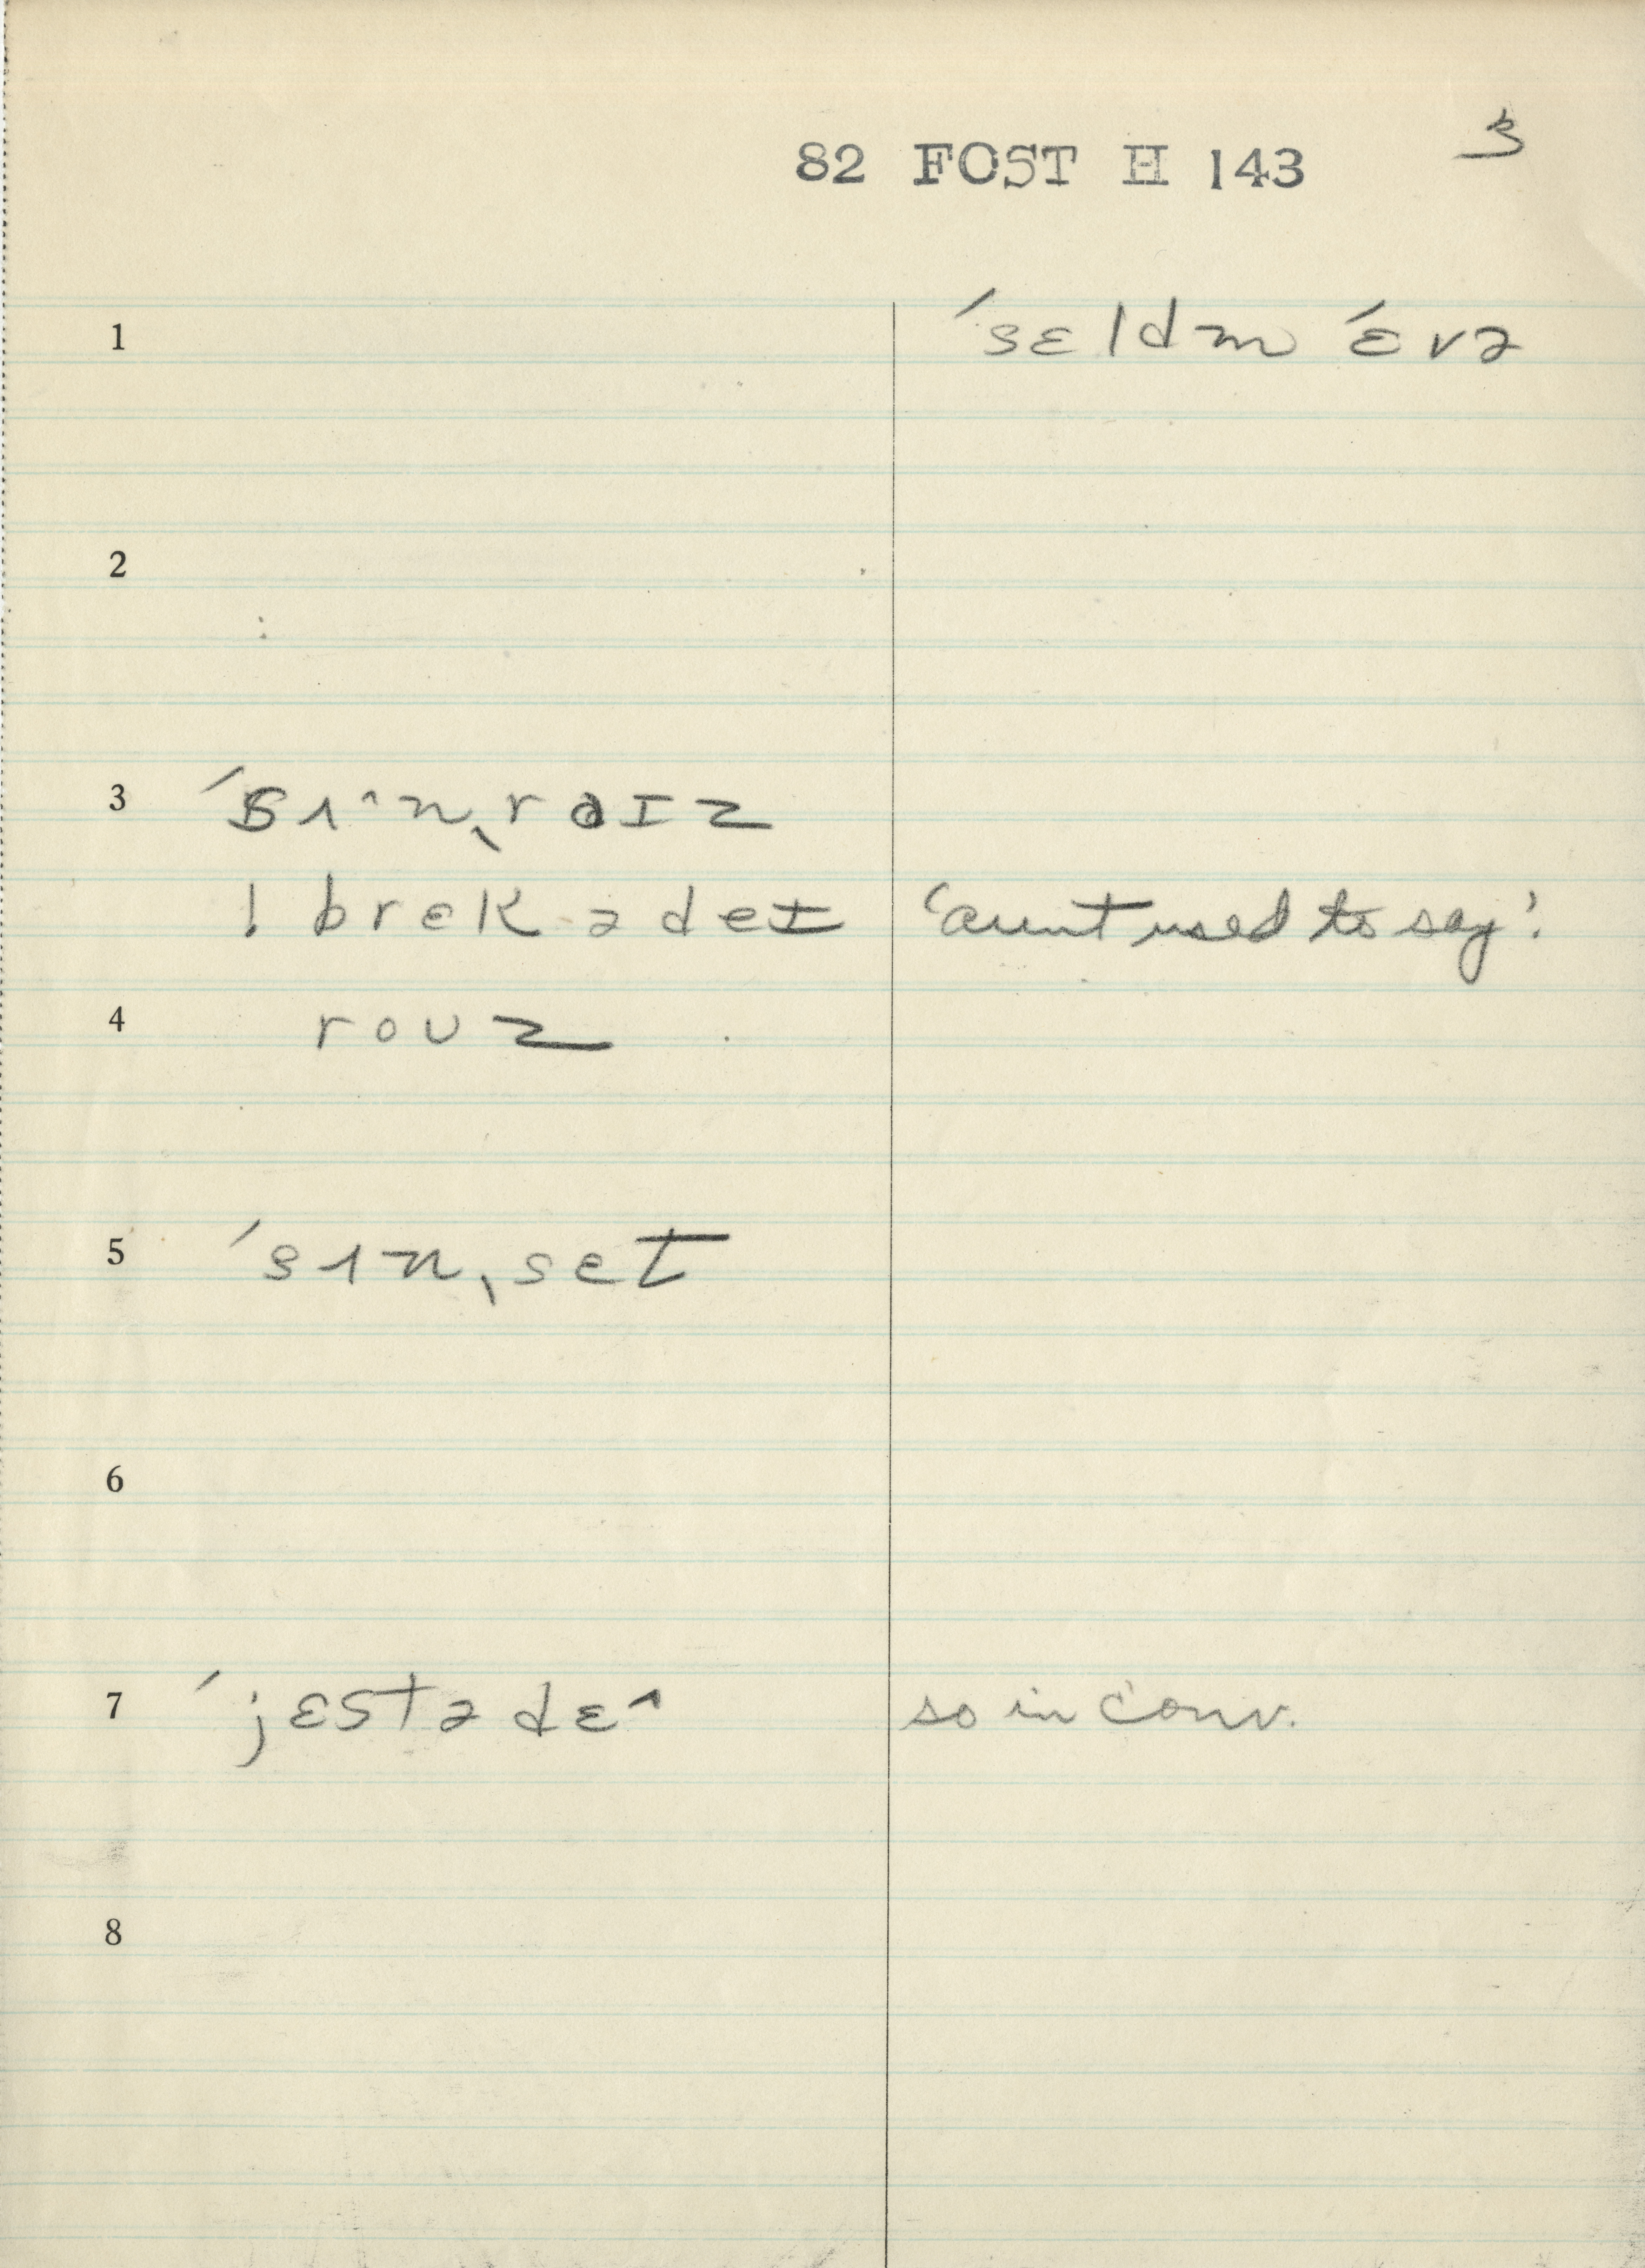 82 FOST H 143 3
1 ˈsɛldm ˈɛvə
2
3 ˈsɜ˄nˌrɑɪz
! brek ə deɪ 'aunt used to say'.
4 roʊz
5 ˈsɜnˌset
6
7 ˈjɛstədɛ˄ so in conv.
8